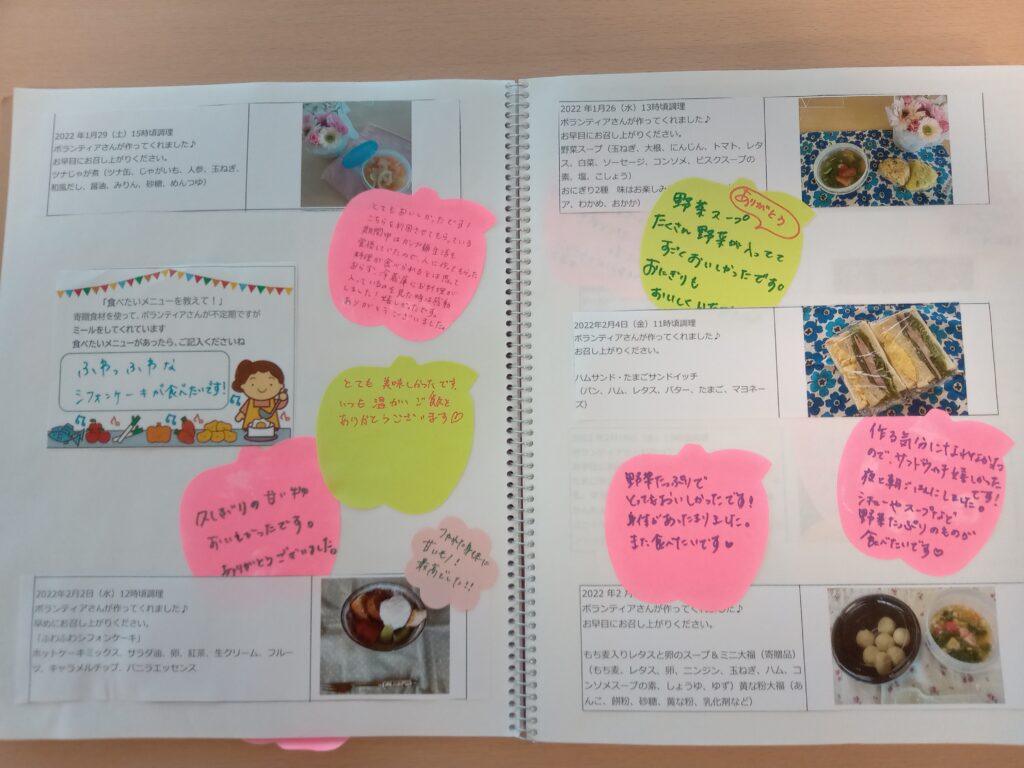 2022 年1月29（土）15時頃調理
ボランティアさんが作ってくれました♪
お早目にお召し上がりください。
ツナじゃが煮（ツナ缶、じゃがいも、人参、玉ねぎ、
和風だし、醤油、みりん、砂糖、めんつゆ）
とてもおいしかったです！
こちらを利用させてもらっている
期間中はカンヅメ生活を
覚悟していたので、人に作ってもらった
料理が食べられるとは思って
おらず、冷蔵庫にお料理が
入っているのを見た時は感動
しました！嬉しかったです。
ありがとうございました。
「食べたいメニューを教えて！」
寄贈食材を使って、ボランティアさんが不定期ですが
ミールをしてくれています
食べたいメニューがあったら、ご記入くださいね
ふわっふわな
シフォンケーキが食べたいです！
とても美味しかったです
いつも温かいご飯を
ありがとうございます♡
久しぶりの甘い物
おいしかったです。
ありがとうございました。
つかれた身体に
甘いもの！
最高でした！！
2022年2月2日（水）12時頃調理
ボランティアさんが作ってくれました♪
早めにお召し上がりください。
「ふわふわシフォンケーキ」
ホットケーキミックス、サラダ油、卵、紅茶、生クリーム、フルー
ツ、キャラメルチップ、バニラエッセンス
2022 年1月26（水）13時頃調理
ボランティアさんが作ってくれました♪
お早目にお召し上がりください。
野菜スープ（玉ねぎ、大根、にんじん、トマト、レタ
ス、白菜、ソーセージ、コンソメ、ビスクスープの
素、塩、こしょう）
おにぎり2種　味はお楽しみ
ア、わかめ、おかか）
ありがとう
野菜スープ
たくさん野菜が入ってて
すごくおいしかったです。
おにぎりも
おいしくいた
2022年2月4日（金）11時頃調理
ボランティアさんが作ってくれました♪
お召し上がりください。
ハムサンド・たまごサンドイッチ
（パン、ハム、レタス、バター、たまご、マヨネー
ズ）
作る気分になれなかった
ので、サンドウィッチ嬉しかった
です！
夜と朝ごはんにしました。
シチューやスープなど
野菜たっぷりのものが
食べたいです♡
野菜たっぷりで
とってもおいしかったです！
身体があったまりました。
また食べたいです♥
2022 年2月
ボランティアさんが作ってくれました♪
お早目にお召し上がりください。
もち麦入りレタスと卵のスープ＆ミニ大福（寄贈品）
（もち麦、レタス、卵、ニンジン、玉ねぎ、ハム、コ
ンソメスープの素、しょうゆ、ゆず）黄な粉大福（あ
んこ、餅粉、砂糖、黄な粉、乳化剤など）